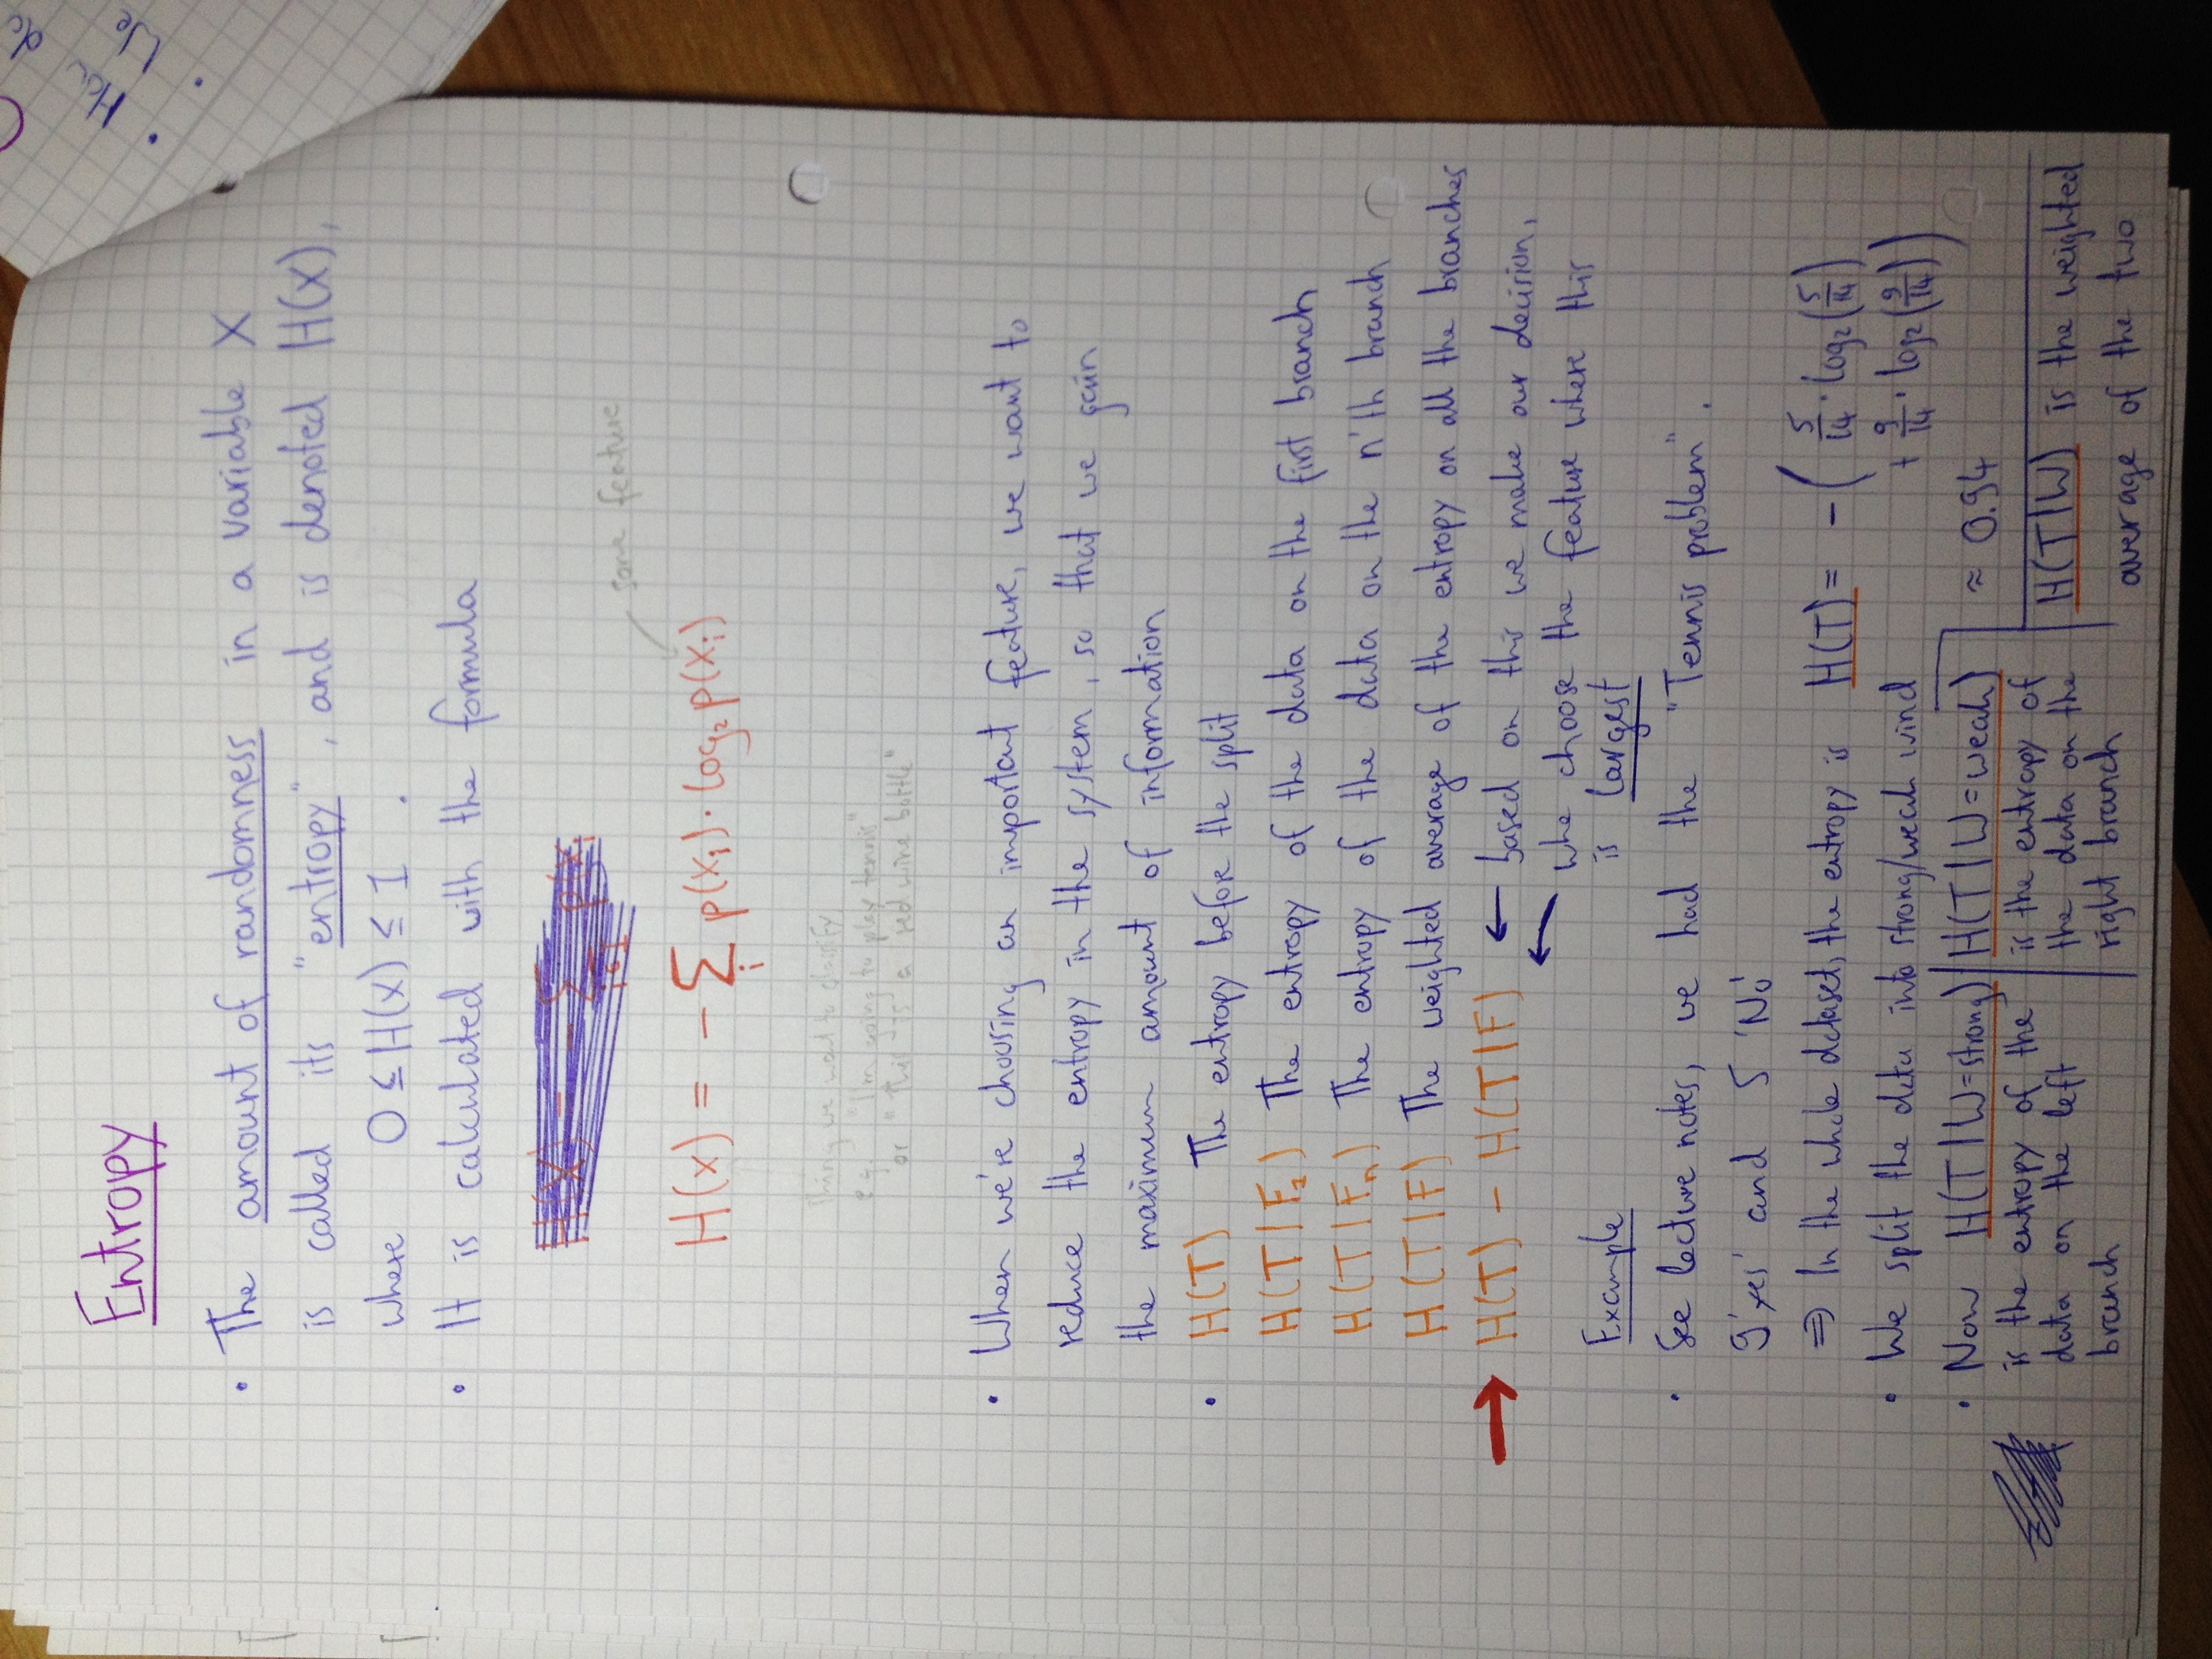 Entropy
• The amount of randomness in a variable X
is called its "entropy", and is denoted H(X),
where 0 ≤ H(X) ≤ 1 .
• It is calculated with the formula
H(X) = - ∑ p(xi
i=1
some feature
H(x) = - ∑i p(xi) · log₂ p(xi)
Thing we want to classify
e.g. "I'm going to play tennis"
or "This is a red wine bottle"
• When we're choosing an important feature, we want to
reduce the entropy in the system, so that we gain
the maximum amount of information
• H(T) The entropy before the split
H(T|F₁) The entropy of the data on the first branch
H(T|Fn) The entropy of the data on the n'th branch
H(T|F) The weighted average of the entropy on all the branches
→ H(T) - H(T|F) ← based on this we make our decision,
← whe choose the feature where this
is largest
Example
• See lecture notes, we had the "Tennis problem".
9 'yes' and 5 'No'
⇒ In the whole dataset, the entropy is H(T) = - ( 5/14 · log₂(5/14)
+ 9/14 · log₂(9/14) )
≈ 0.94
• We split the data into strong/weak wind
• Now H(T|W=strong)
is the entropy of the
data on the left
branch
H(T|W=weak)
is the entropy of
the data on the
right branch
H(T|W) is the weighted
average of the two
• How do
• We